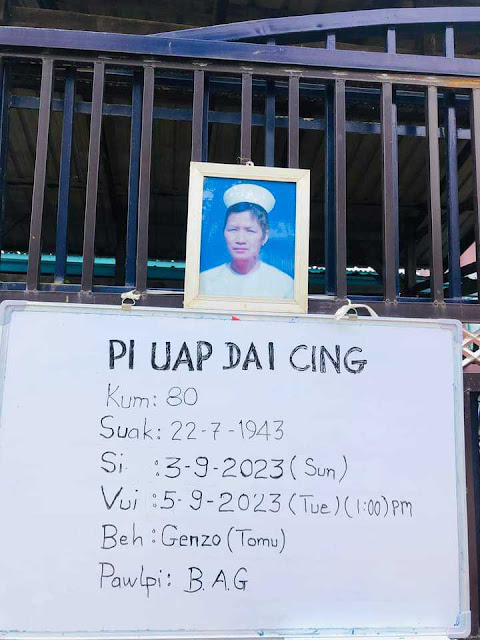 PI UAP DAI CING
Kum: 80
Suak: 22-7-1943
Si : 3-9-2023 (Sun)
Vui : 5-9-2023 (Tue) (1:00) pm
Beh : Genzo (Tomu)
Pawlpi: B.A.G